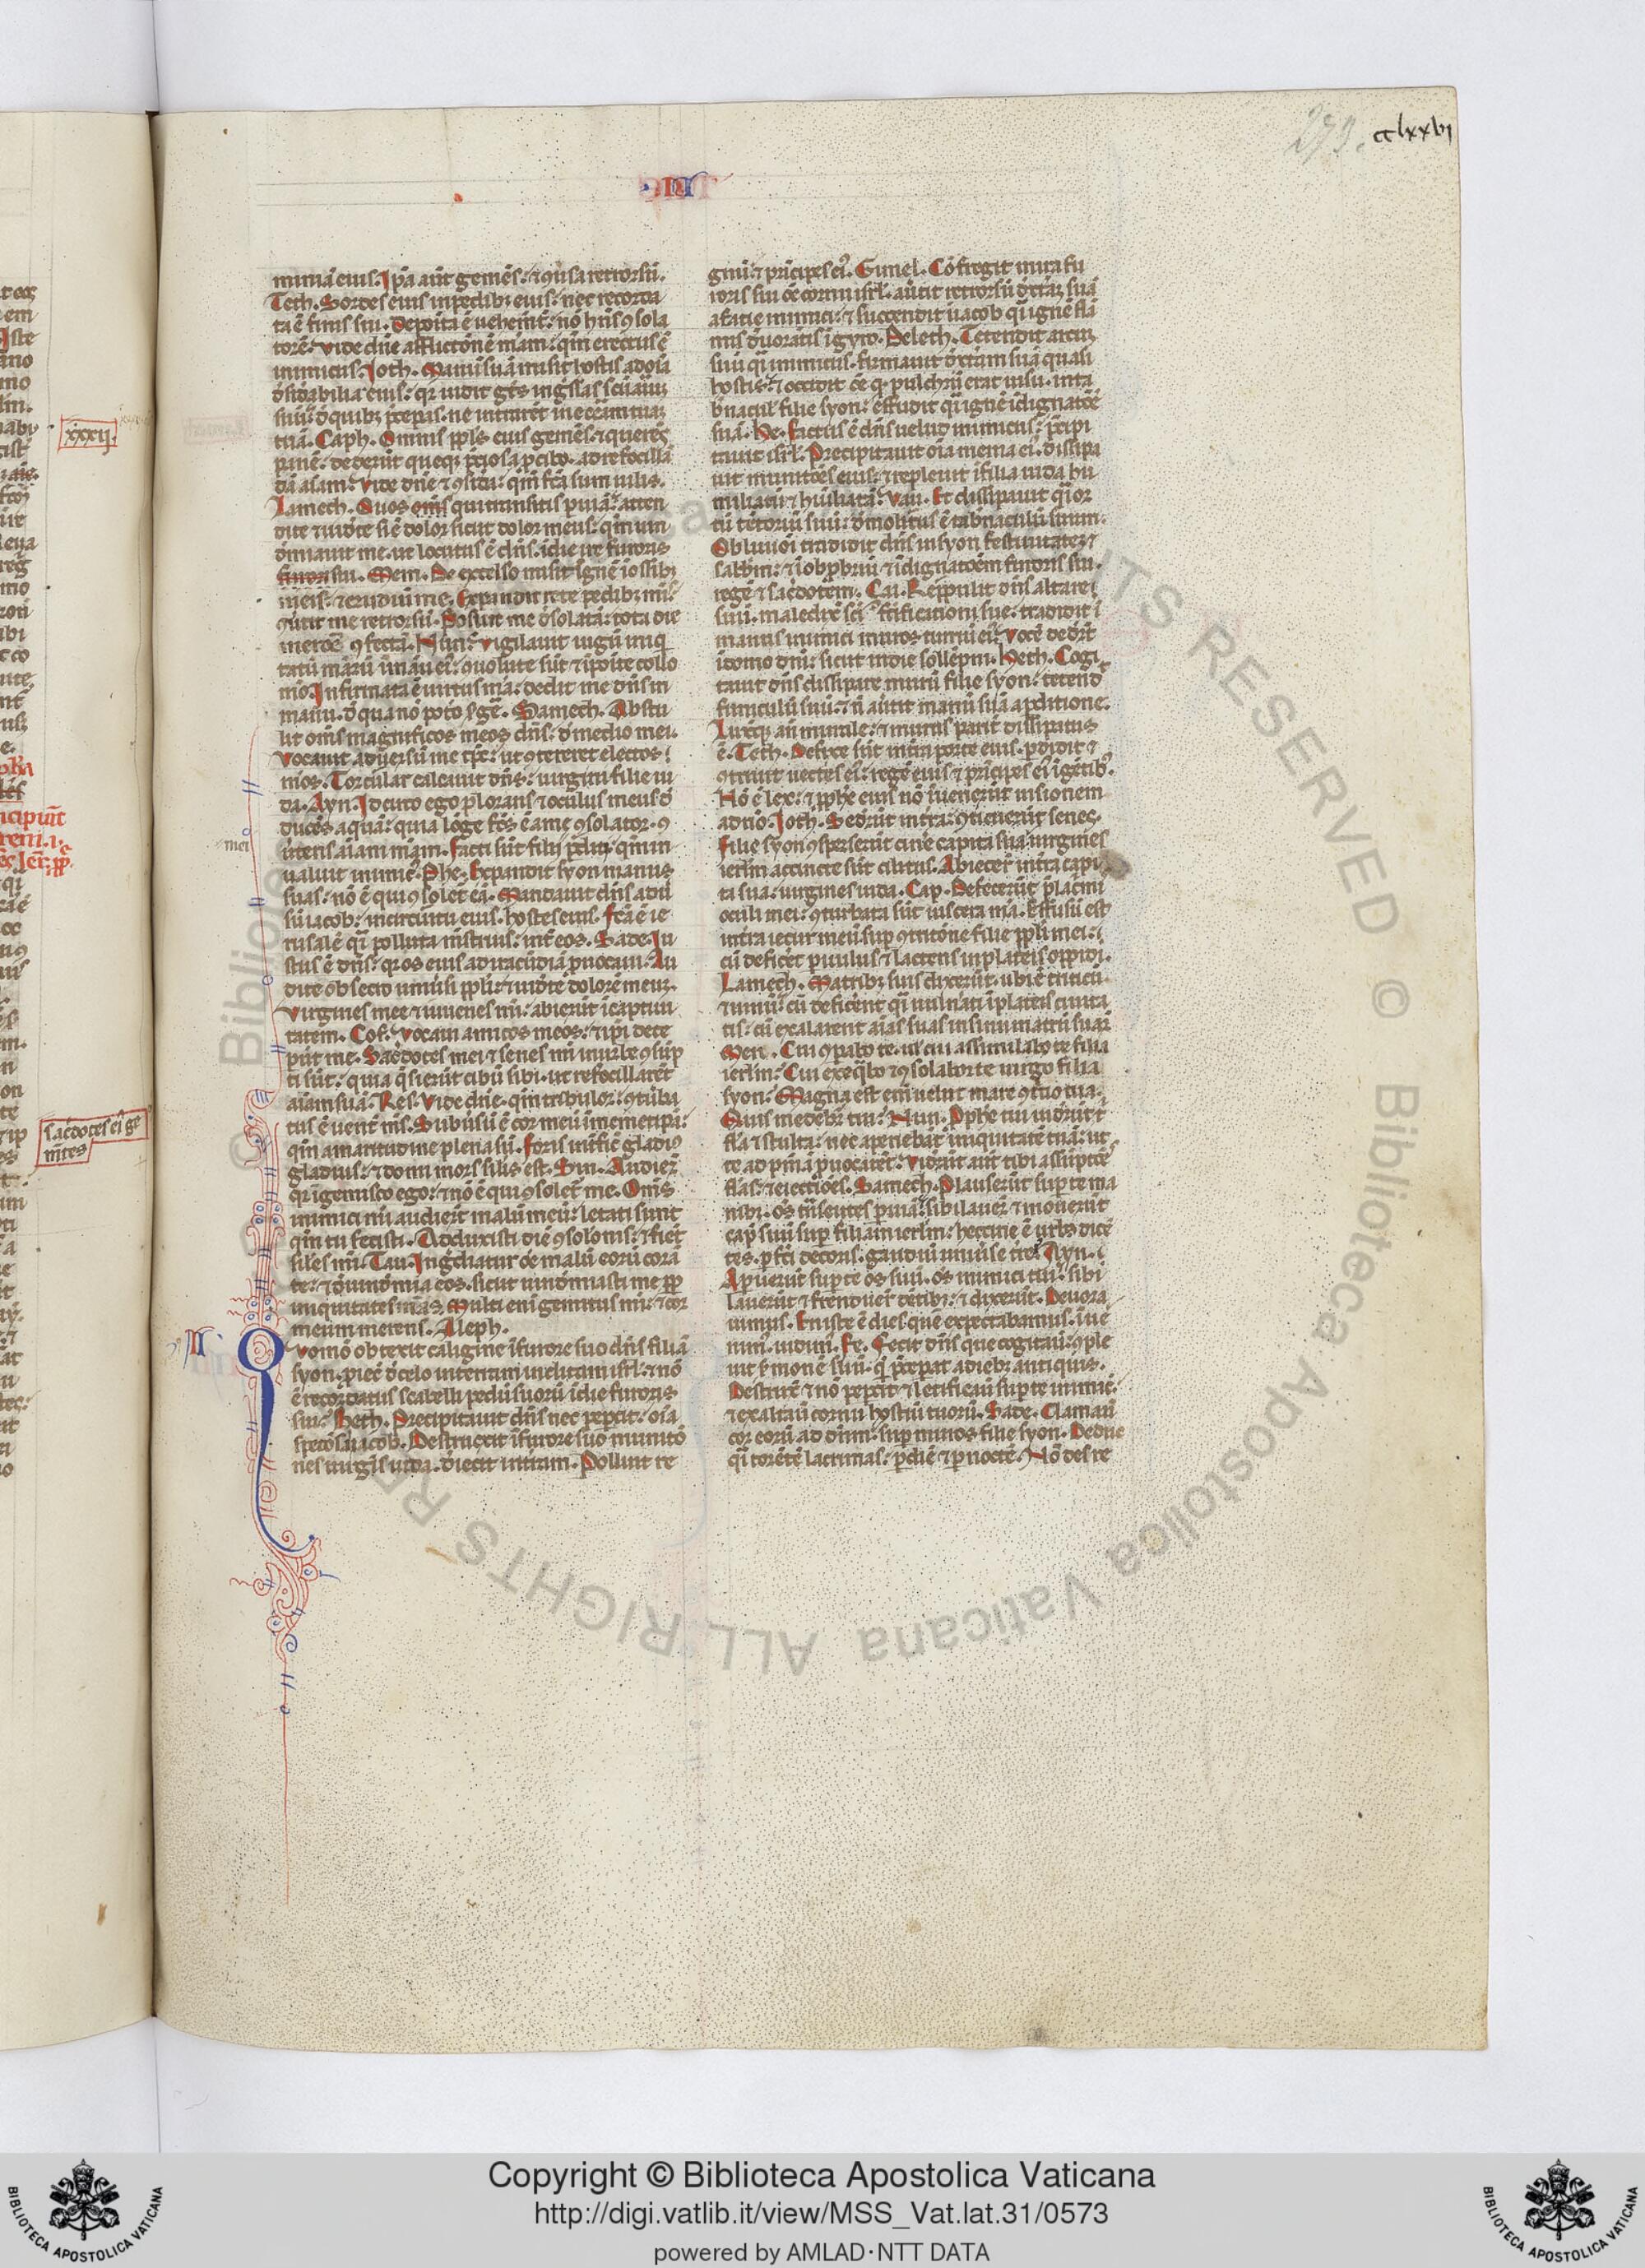 273.
cclxxvi
miniā eius. Ipā aūt gemēs: ⁊ ꝯūsa retrorsū.
Teth. Sordes eius inpedibꝫ eius: nec recorda
ta ē finis sui. Deposita ē uehemt̄: nō hn̄s ꝯsola
torē. Vide dn̄e afflictōnē meam: qm̄ erectus ē
inimicus. Joth. Manū suā misit hostis ad oīa
dēsid̄abilia eius: qr uidit gētes ingssas scūariū
suū: de quibꝫ p̄cepas. ne intrarēt in ecc̄iam
tuā. Caph. Omnis ppl̄s eius gemēs: ⁊ querēs
panē. dederūt queqꝫ p̄ciosa p̄ cibo. ad refocillā
dā aīam. Vide dn̄e ⁊ ꝯsid̄a: qm̄ fc̄a sum uilis.
Lamech. O uos om̄s qui transitis p uiā: atten
dite ⁊ uidete si ē dolor sicut dolor meus: qm̄ uin
demiauit me. ut locutus ē dn̄s. ī die ire furoris
sui. Mem. De excelso misit ignē ī ossibꝫ
meis. ⁊ erudiuit me. Expandit rete pedibꝫ mīs
ꝯūtit me retrorsū. Posuit me dēsolatā: tota die
merore ꝯfectā. Nun. Vigilauit iugū iniqi
tatū meaꝝ in manu ei: ꝯuolute sūt ⁊ īposite collo
meo. Infirmata ē uirtus mea: dedit me dn̄s in
manu. de qua nō potero surgē. Samech. Abstu
lit om̄s magnificos meos dn̄s. de medio mei.
Vocauit aduersū me tp̄s: ut ꝯtereret electos
meos. Torcular calcauit dn̄s: uirgini filie iu
da. Ayn. Idcirco ego plorans: ⁊ oculus meus de
ducēs aquā: quia lōge fc̄s ē a me ꝯsolator. ꝯ
uertens aīam meam. Facti sūt filij perditi: qm̄ in
ualuit inimicꝰ. Phe. Expandit syon manus
suas: nō ē qui ꝯsolet eā. Mandauit dn̄s aduer
sū iacob: in circuitu eius. hostes eius. Fc̄a ē ie
rusalē qi polluta menstruis: int̄ eos. Sade. Iu
stus ē dn̄s: qr os eius ad iracūdiā puocaui. Au
dite obsecro uniūsi ppl̄i: ⁊ uidete dolorē meū.
Virgines mee ⁊ iuuenes mei: abierūt ī captiui
tatem. Cof. Vocaui amicos meos: ⁊ ipi dece
perūt me. Sacerdotes mei ⁊ senes mei in urbe ꝯsūp
ti sūt: quia qsierūt cibū sibi. ut refocillarēt
aīam suā. Res. Vide dn̄e. qm̄ tribulor: ꝯturba
tus ē uent̄ ms. Subūsū ē cor meū ī memetipa:
qm̄ amaritudine plena sū. Foris int̄ficit
gladius: ⁊ domi mors similis est. Sin. Audierūt
qr īgemisco ego: ⁊ nō ē qui ꝯsolet me. Om̄s
inimici mei audierūt malū meū: letati sunt
qm̄ tu fecisti. Adduxisti diē ꝯsolōnis: ⁊ fient
sīles mei. Tau. Ingrediatur om̄e malū eorū corā
te: ⁊ deuindemia eos. sicut uindemiasti me pp
iniquitates meas. Multi enī gemitus mei: ⁊ cor
meum merens. Aleph.
II
Quomō obtexit caligine ī furore suo dn̄s filiā
syon: piecit de celo interram inclitam isrl̄: ⁊ nō
ē recordatus scabelli pedū suorū ī die furoris
sui. Beth. Precipitauit dn̄s nec pepercit: oīa
speciosa iacob. Destruxit ī furore suo munitio
nes uirgīs iuda. deiecit interram. Polluit re
mei
gnū: ⁊ prīcipes eiꝰ. Gimel. Cōfregit inira fu
roris sui om̄e cornu isrl̄. auertit retrorsū dextā suā
afacie inimici: ⁊ succendit ī iacob qi ignē flā
mis deuorātis ī gyro. Deleth. Tetendit arcū
suū qi inimicus. firmauit dextam suā quasi
hostis: ⁊ occidit om̄e q̄ pulchrū erat uisu. inta
bernaculo filie syon: effudit qi ignē īdignatōē
suā. He. Factus ē dn̄s uelud inimicus: p̄cipi
tauit isrl̄. Precipitauit oīa menia eiꝰ. dissipa
uit munitōes eius: ⁊ repleuit ī filia iuda hu
miliatū ⁊ hūiliatā. Vau. Et dissipauit qi or
tū tētoriū suū: demolitus ē tabn̄aculū suum.
Obliuioi tradidit dn̄s in syon festiuitatez ⁊
sabbm̄: ⁊ ī obprbriū ⁊ īdignatōem furoris sui.
regē ⁊ sacerdotem. Zai. Reppulit dn̄s altare
suū. maledixit sci ficationi sue. tradidit ī
manus inimici muros turriū eiꝰ. Vocē dederūt
ī domo dn̄i: sicut in die sollēpni. Heth. Cogi
tauit dn̄s dissipare murū filie syon: tetendit
funiculū suū: ⁊ n̄ auertit manū suā a perditione.
Luxitqꝫ an̄ murale: ⁊ murus parit̄ dissipatus
ē. Teth. Defixe sūt intra porte eius. perdidit ⁊
ꝯtriuit uectes eiꝰ: regē eius ⁊ prīcipes eiꝰ ī gētibꝰ.
Nō ē lex: ⁊ pphe eius nō īuenerūt uisionem
a dn̄o. Joth. Sederūt intra: ꝯticuerūt senes
filie syon ꝯsperserūt cinē capita sua uirgines
ierl̄m accincte sūt ciliciis. Abiecerūt intra capi
ta sua: uirgines iuda. Cap. Defecerūt p̄ lac̄mis
oculi mei: ꝯturbata sūt uiscera mea. Effusū est
intra iecur meū sup ꝯtritōne filie ppl̄i mei:
cū deficet puulus ⁊ lactens in plateis oppidi.
Lamech. Matribꝫ suis dixerūt. ubi ē triticū
⁊ uinū: cū deficerent qi uulnati ī plateis ciuita
tis: cū exalarent aīas suas in sinu matrū suaꝝ
Men. Cui ꝯparabo te. ul cui assimilabo te filia
ierl̄m: Cui exequabo te ⁊ ꝯsolabor te uirgo filia
syon: Magna est enī uelut mare ꝯtricio tua.
Quis medebit̄ tui: Nun. Pphe tui uiderūt t̄
flā ⁊ stulta: nec aperiebāt iniquitatē tuā: ut
te ad pniā puocarēt. Viderūt aūt tibi assūptōes
flās: ⁊ eiectiōes. Samech. Plauserūt sup te ma
nibꝫ. om̄s trāseūtes p uiā: sibilauerūt ⁊ mouerūt
caput suū sup filiam ierl̄m: heccine ē urbs dicen
tes. pfc̄i decoris. gaudiū uniūse t̄re. Ayn.
Aperuerūt sup te os suū. om̄s inimici tui: sibi
lauerūt ⁊ frenduerūt dētibꝫ: ⁊ dixerūt. Deuora
uimus. En iste ē dies quē expectabamus. īue
nimꝰ. uidimꝰ. Fe. Fecit dn̄s que cogitauit: ꝯple
uit s̄monē suū. q̄ p̄ceperat a diebꝫ antiquis.
Destruxit ⁊ nō pepercit: ⁊ letificauit sup te inimicū:
⁊ exaltauit cornu hostiū tuorū. Sade. Clamauit
cor eorū ad dn̄m: sup muros filie syon. Deduc
qi torrētē lacrimas: p̄ diē ⁊ p nocte. Nō des re
xxxij.
sacerdotes eiꝰ ge
mētes
© Biblioteca Apostolica Vaticana ALL RIGHTS RESERVED
Copyright © Biblioteca Apostolica Vaticana
http://digi.vatlib.it/view/MSS_Vat.lat.31/0573
powered by AMLAD·NTT DATA
BIBLIOTECA APOSTOLICA VATICANA
BIBLIOTECA APOSTOLICA VATICANA